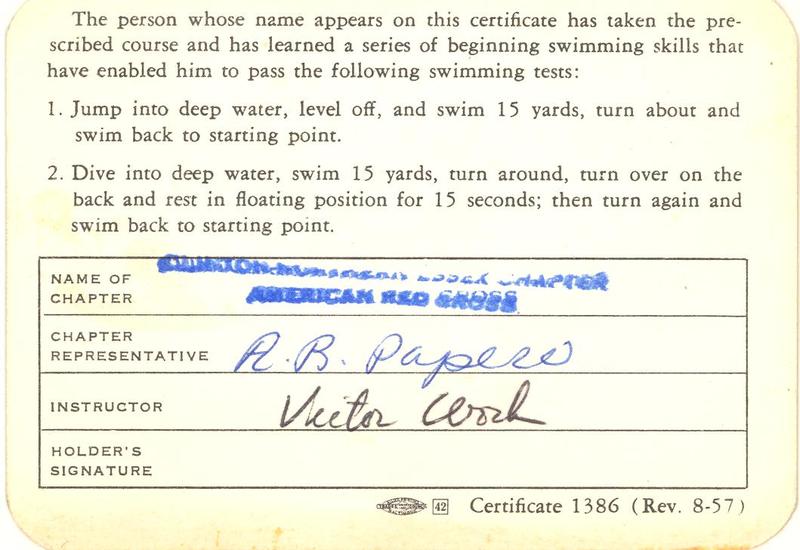 The person whose name appears on this certificate has taken the pre-
scribed course and has learned a series of beginning swimming skills that
have enabled him to pass the following swimming tests:
1. Jump into deep water, level off, and swim 15 yards, turn about and
swim back to starting point.
2. Dive into deep water, swim 15 yards, turn around, turn over on the
back and rest in floating position for 15 seconds; then turn again and
swim back to starting point.
NAME OF
CHAPTER
ESSEX CHAPTER
AMERICAN RED CROSS
CHAPTER
REPRESENTATIVE
R. B. Papero
INSTRUCTOR
Victor
HOLDER'S
SIGNATURE
42 Certificate 1386 (Rev. 8-57)